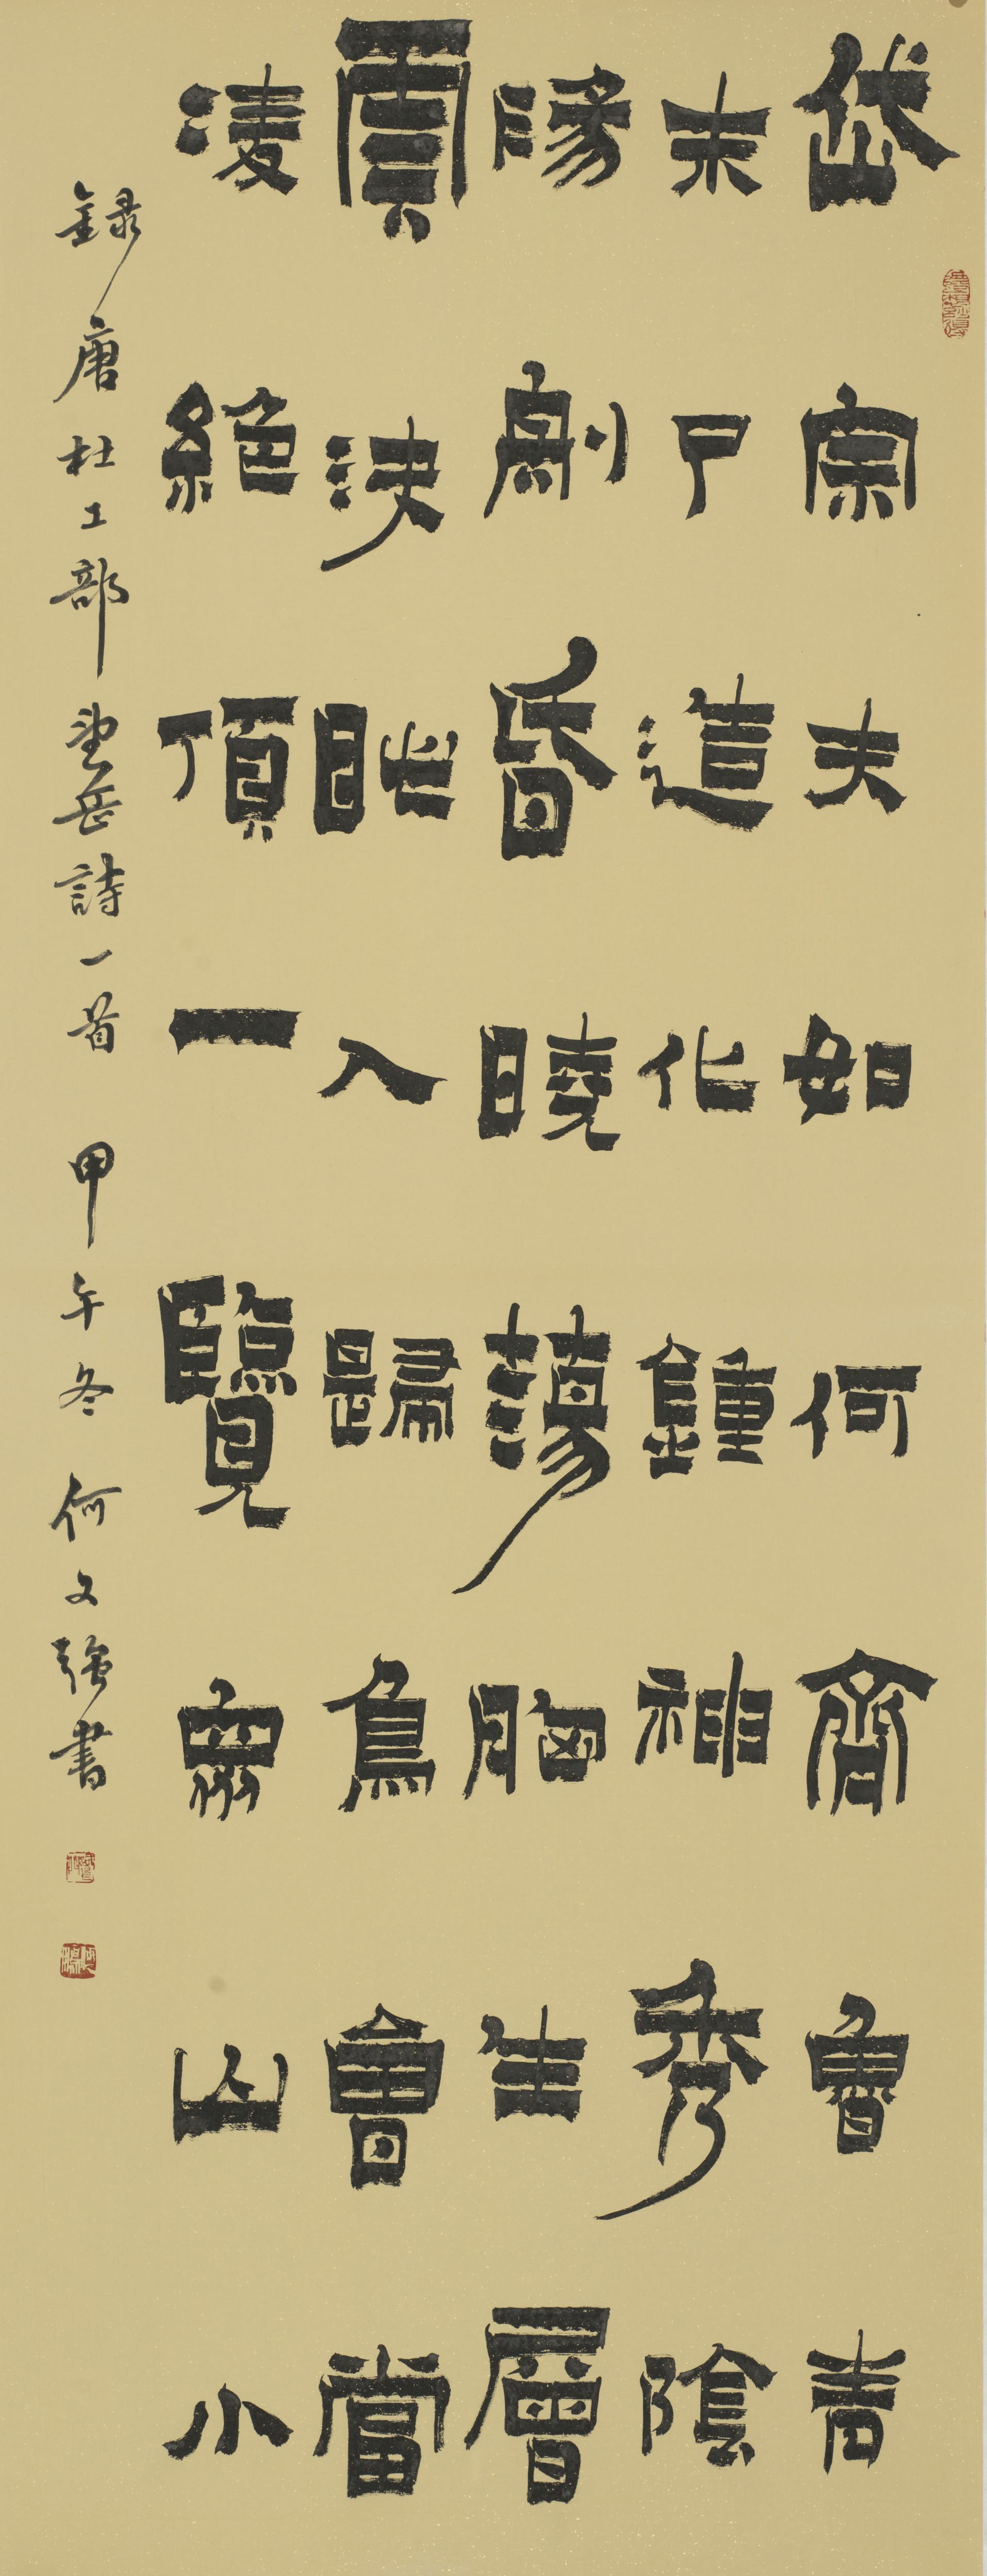 岱宗夫如何齊魯青
未了造化鍾神秀陰
陽割昏曉蕩胸生層
雲決眦入歸鳥會當
凌絕頂一覽衆山小
錄唐杜工部望岳詩一首 甲午冬 何文強書